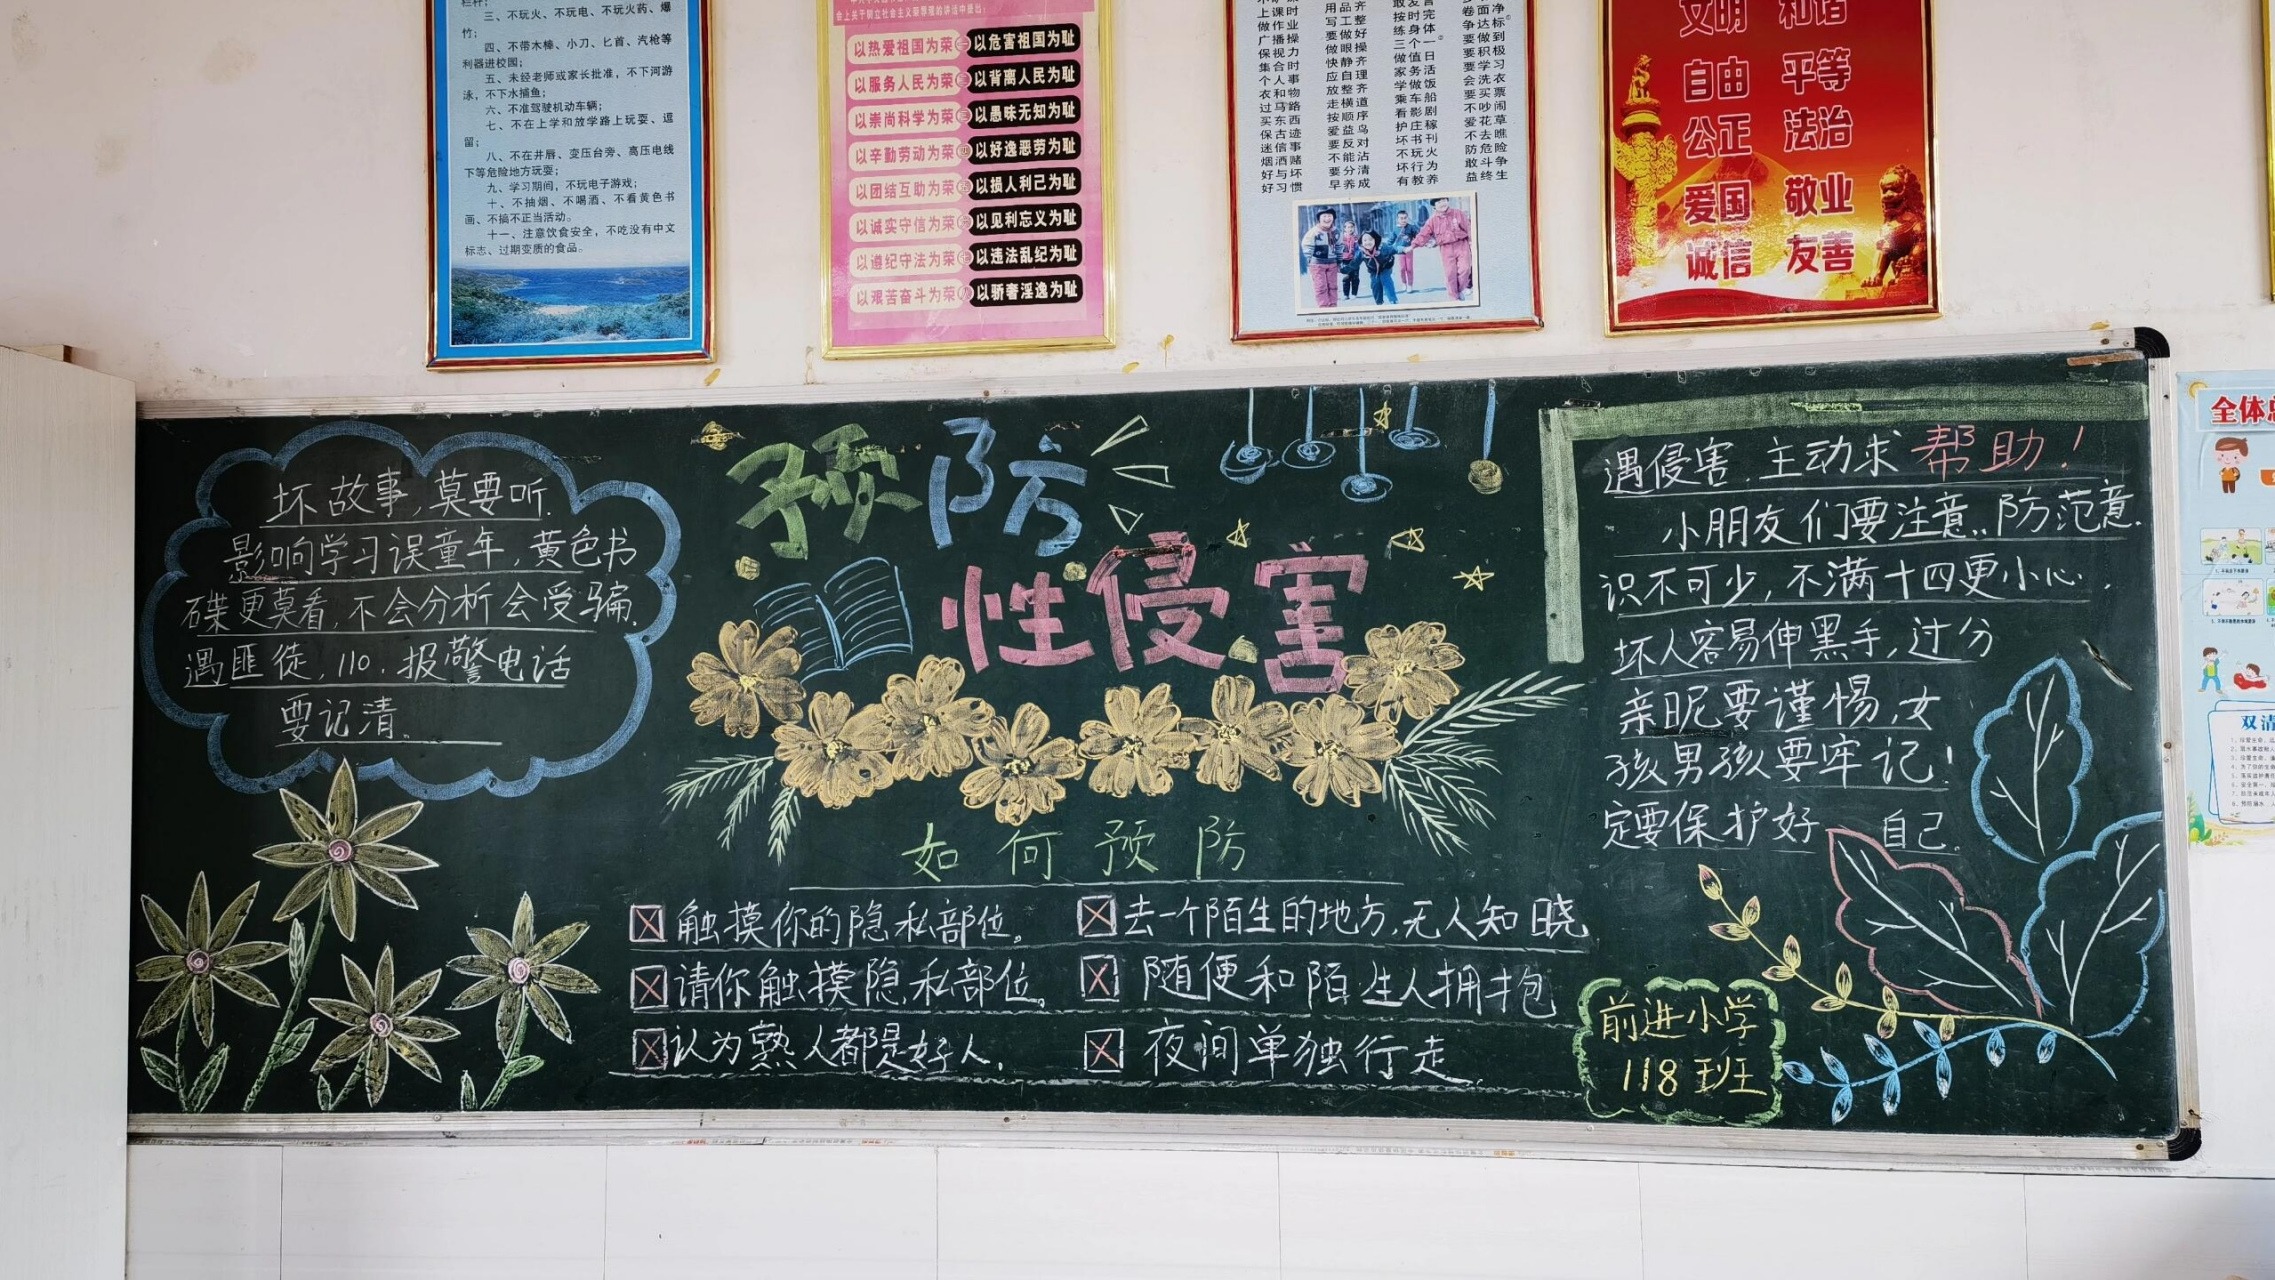 三、不玩火、不玩电、不玩火药、爆
竹；
四、不带木棒、小刀、匕首、汽枪等
利器进校园；
五、未经老师或家长批准，不下河游
泳，不下水捕鱼；
六、不准驾驶机动车辆；
七、不在上学和放学路上玩耍、逗
留；
八、不在井唇、变压台旁、高压电线
下等危险地方玩耍；
九、学习期间，不玩电子游戏；
十、不抽烟、不喝酒、不看黄色书
画、不搞不正当活动。
十一、注意饮食安全，不吃没有中文
标志、过期变质的食品。
以热爱祖国为荣 以危害祖国为耻
以服务人民为荣 以背离人民为耻
以崇尚科学为荣 以愚昧无知为耻
以辛勤劳动为荣 以好逸恶劳为耻
以团结互助为荣 以损人利己为耻
以诚实守信为荣 以见利忘义为耻
以遵纪守法为荣 以违法乱纪为耻
以艰苦奋斗为荣 以骄奢淫逸为耻
文明 和谐
自由 平等
公正 法治
爱国 敬业
诚信 友善
坏故事,莫要听.
影响学习误童年,黄色书
碟更莫看,不会分析会受骗.
遇匪徒,110.报警电话
要记清。
预防
性侵害
如何预防
触摸你的隐私部位。
请你触摸隐私部位。
认为熟人都是好人.
去一个陌生的地方,无人知晓
随便和陌生人拥抱
夜间单独行走
遇侵害.主动求帮助!
小朋友们要注意..防范意.
识不可少,不满十四更小心.
坏人容易伸黑手,过分
亲昵要谨惕,女
孩男孩要牢记!
定要保护好 自己.
前进小学
118班
全体
双清